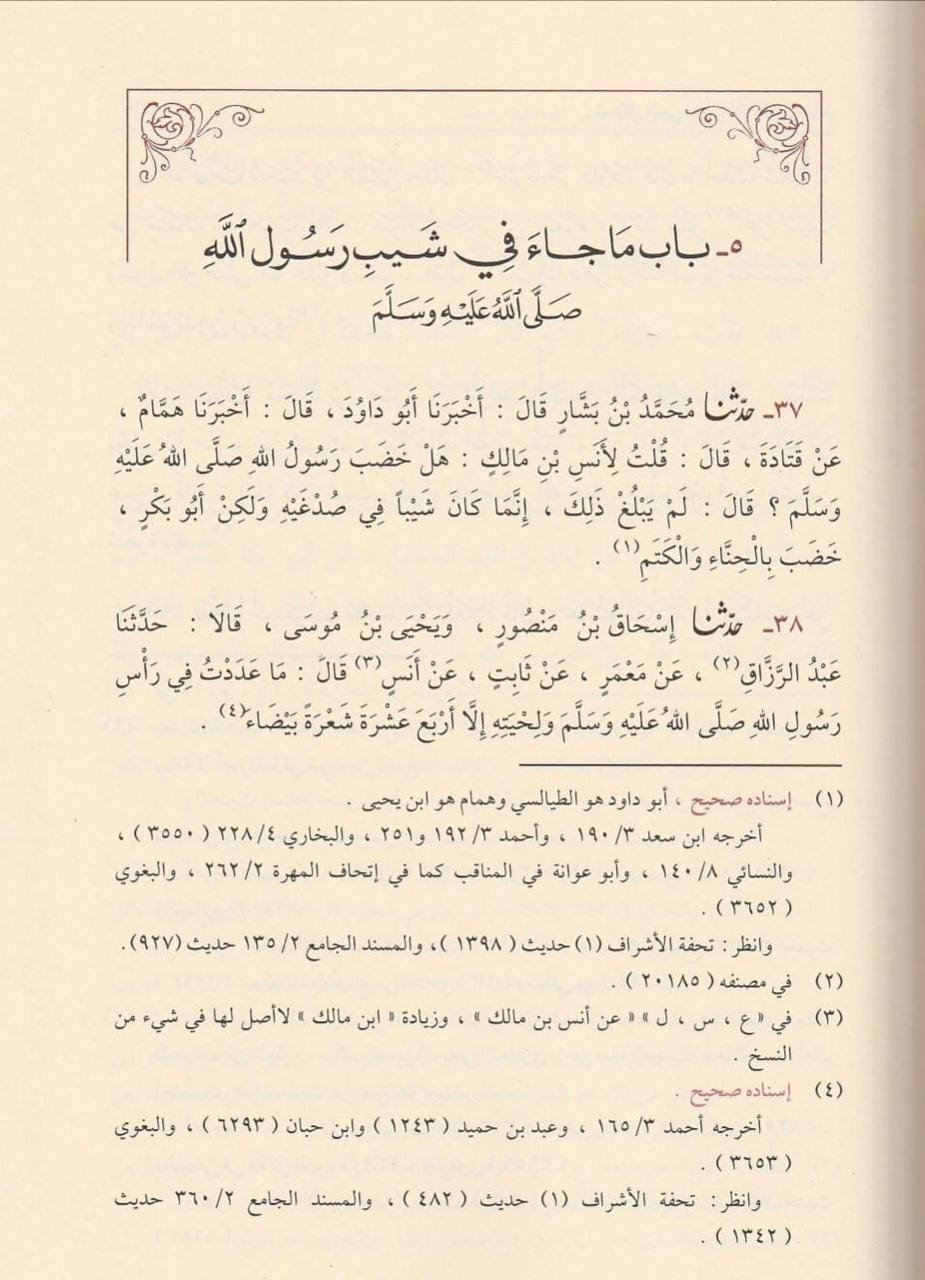 ٥ـ بَابُ مَا جَاءَ فِي شَيْبِ رَسُولِ ٱللَّهِ
صَلَّى ٱللَّهُ عَلَيْهِ وَسَلَّمَ
٣٧ـ حدّثنا مُحَمَّدُ بْنُ بَشَّارٍ قَالَ : أَخْبَرَنَا أَبُو دَاوُدَ ، قَالَ : أَخْبَرَنَا هَمَّامٌ ،
عَنْ قَتَادَةَ ، قَالَ : قُلْتُ لِأَنَسِ بْنِ مَالِكٍ : هَلْ خَضَبَ رَسُولُ اللهِ صَلَّى اللهُ عَلَيْهِ
وَسَلَّمَ ؟ قَالَ : لَمْ يَبْلُغْ ذَلِكَ ، إِنَّمَا كَانَ شَيْباً فِي صُدْغَيْهِ وَلَكِنْ أَبُو بَكْرٍ ،
خَضَبَ بِالْحِنَّاءِ وَالْكَتَمِ(١) .
٣٨ـ حدّثنا إِسْحَاقُ بْنُ مَنْصُورٍ ، وَيَحْيَى بْنُ مُوسَى ، قَالَا : حَدَّثَنَا
عَبْدُ الرَّزَّاقِ(٢) ، عَنْ مَعْمَرٍ ، عَنْ ثَابِتٍ ، عَنْ أَنَسٍ(٣) قَالَ : مَا عَدَدْتُ فِي رَأْسِ
رَسُولِ اللهِ صَلَّى اللهُ عَلَيْهِ وَسَلَّمَ وَلِحْيَتِهِ إِلَّا أَرْبَعَ عَشْرَةَ شَعْرَةً بَيْضَاءَ(٤) .
(١) إسناده صحيح ، أبو داود هو الطيالسي وهمام هو ابن يحيى .
أخرجه ابن سعد ٣/ ١٩٠ ، وأحمد ٣/ ١٩٢ و٢٥١ ، والبخاري ٤/ ٢٢٨ ( ٣٥٥٠ ) ،
والنسائي ٨/ ١٤٠ ، وأبو عوانة في المناقب كما في إتحاف المهرة ٢/ ٢٦٢ ، والبغوي
( ٣٦٥٢ ) .
وانظر : تحفة الأشراف (١) حديث ( ١٣٩٨ )، والمسند الجامع ٢/ ١٣٥ حديث (٩٢٧).
(٢) في مصنفه ( ٢٠١٨٥ ) .
(٣) في « ع ، س ، ل » « عن أنس بن مالك » ، وزيادة « ابن مالك » لاأصل لها في شيء من
النسخ .
(٤) إسناده صحيح .
أخرجه أحمد ٣/ ١٦٥ ، وعبد بن حميد ( ١٢٤٣ ) وابن حبان ( ٦٢٩٣ ) ، والبغوي
( ٣٦٥٣ ) .
وانظر : تحفة الأشراف (١) حديث ( ٤٨٢ ) ، والمسند الجامع ٢/ ٣٦٠ حديث
( ١٣٤٢ ) .